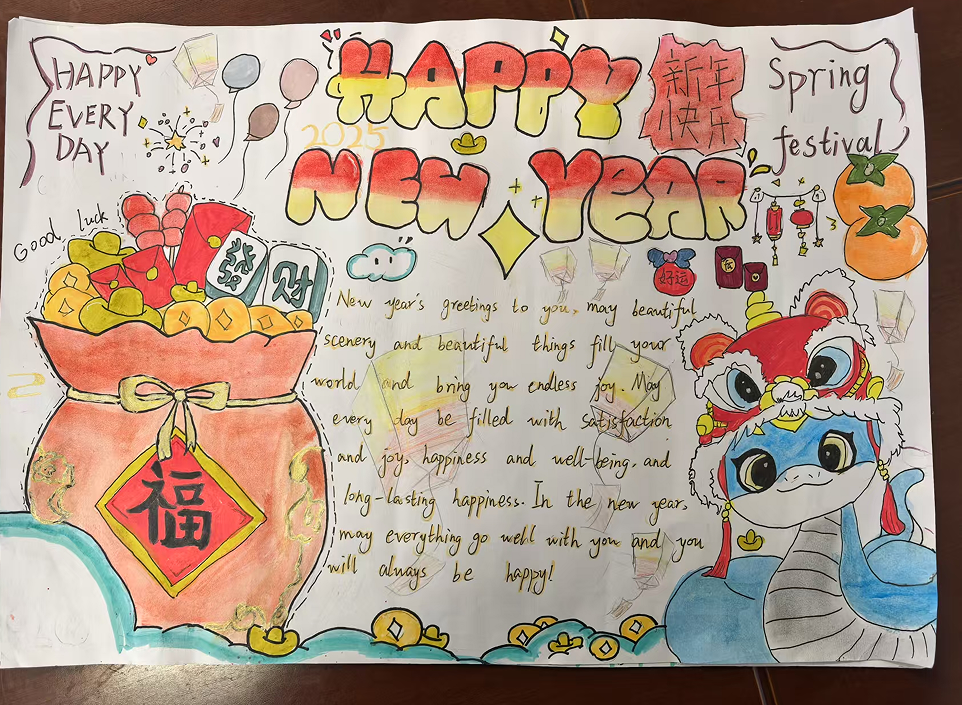 HAPPY
EVERY
DAY
HAPPY
2025
NEW YEAR
新年
快乐
Spring
festival
Good luck
發 财
好运
福
New year's greetings to you, may beautiful
scenery and beautiful things fill your
world and bring you endless joy. May
every day be filled with satisfaction
and joy, happiness and well-being, and
long-lasting happiness. In the new year,
may everything go well with you and you
will always be happy!